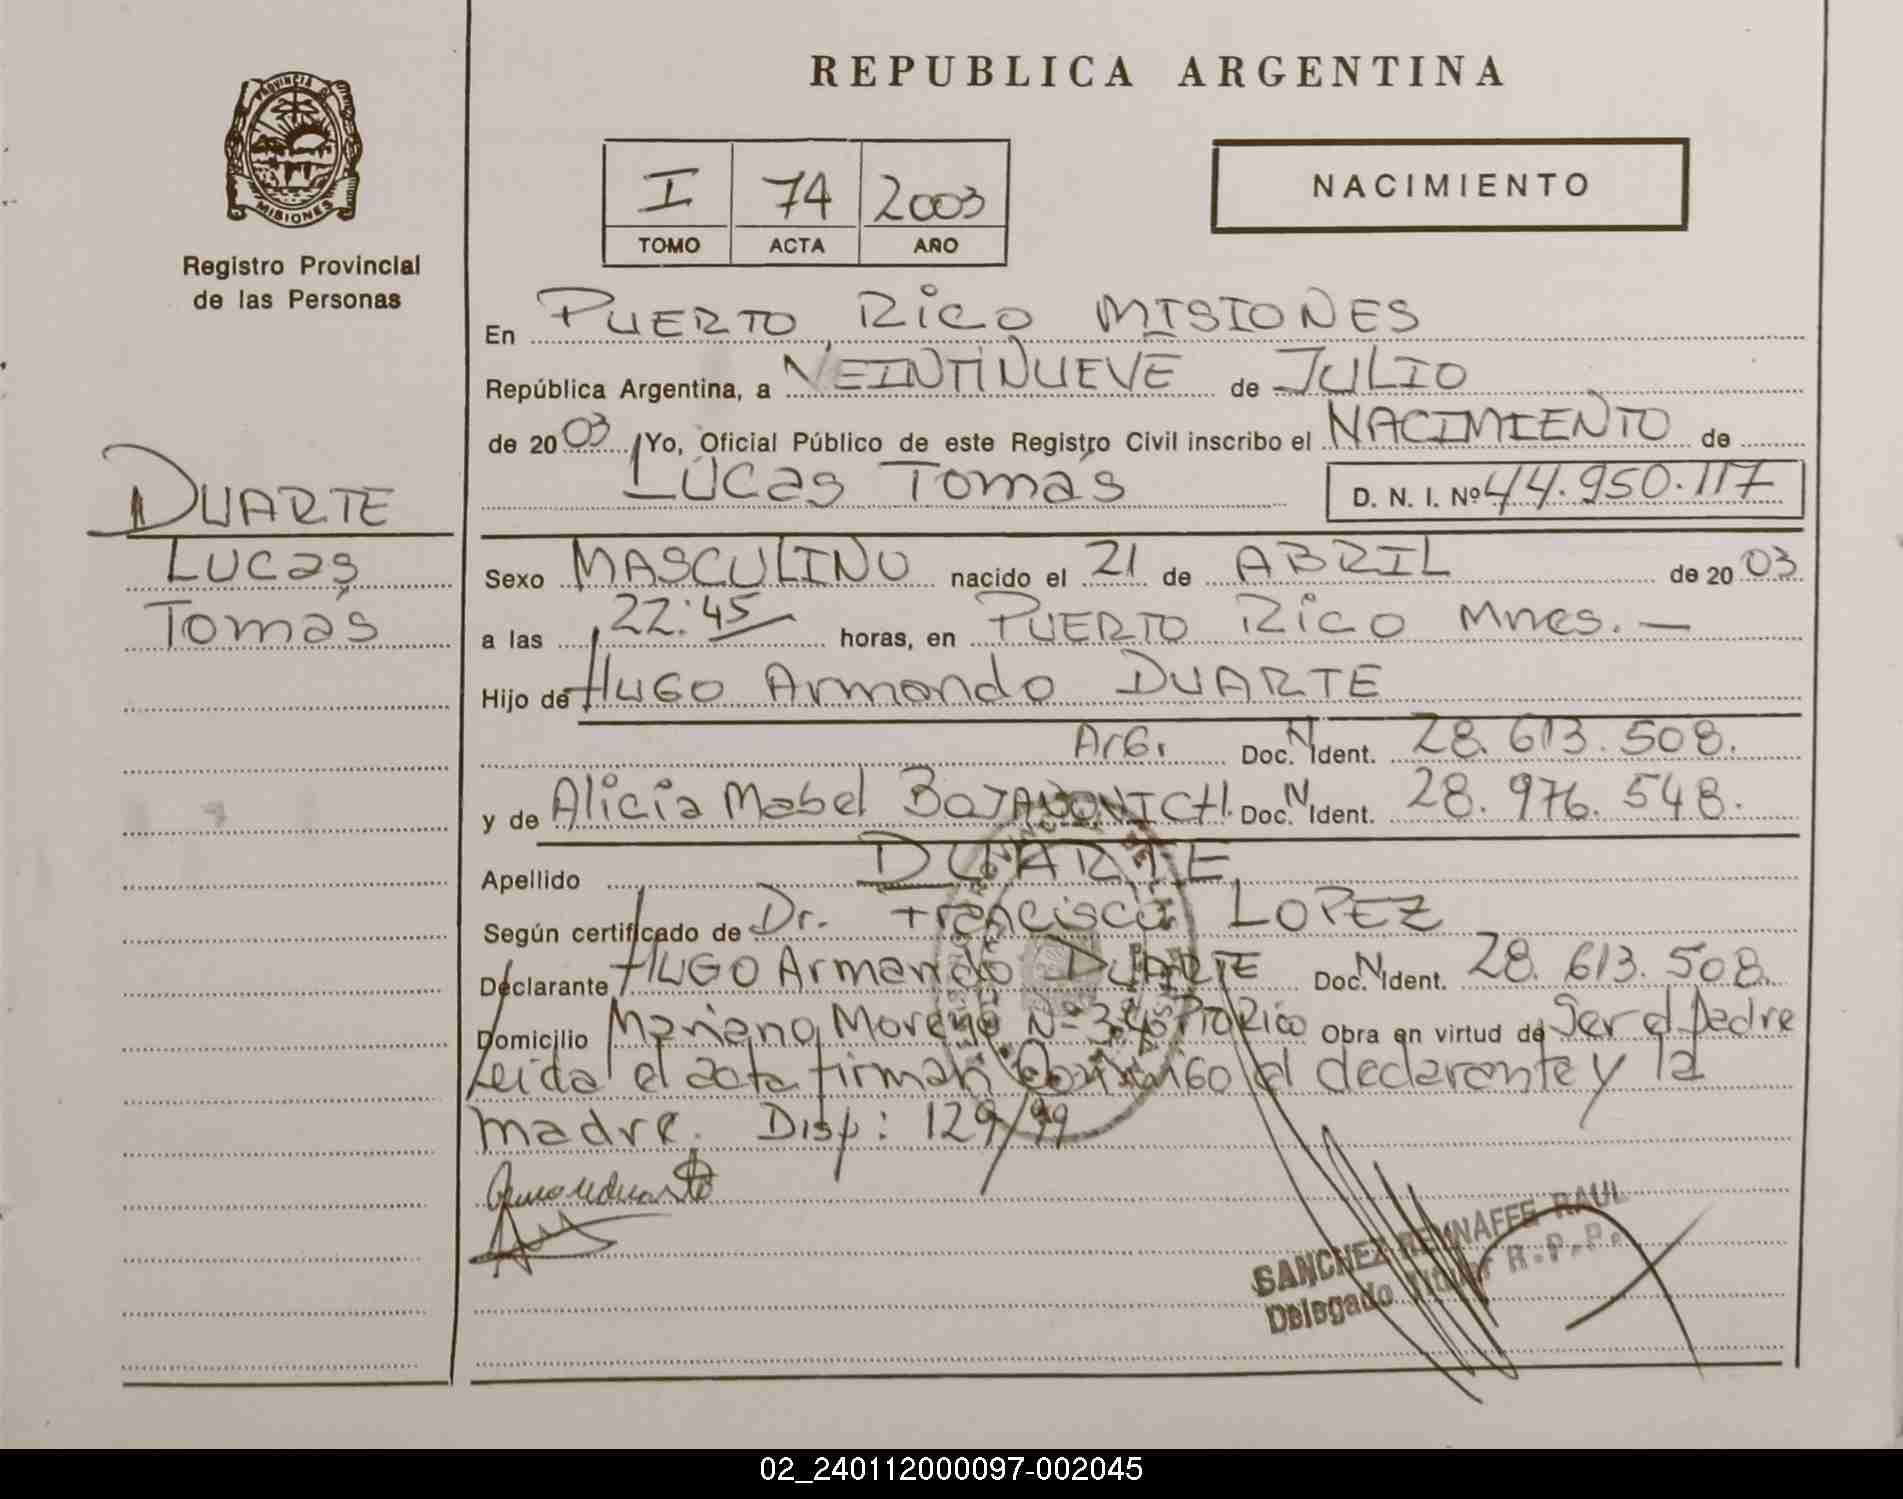 REPUBLICA ARGENTINA
PROVINCIA DE
MISIONES
Registro Provincial
de las Personas
I 74 2003
TOMO ACTA AÑO
NACIMIENTO
En PUERTO RICO MISIONES
República Argentina, a VEINTINUEVE de JULIO
de 2003 Yo, Oficial Público de este Registro Civil inscribo el NACIMIENTO de
Lucas Tomás D. N. I. Nº 44.950.117
DUARTE
Lucas
Tomás
Sexo MASCULINO nacido el 21 de ABRIL de 2003
a las 22:45 horas, en PUERTO RICO Mnes. —
Hijo de HUGO Armando DUARTE
Arg. Doc. N Ident. 28.613.508.
y de Alicia Mabel Doc. N Ident. 28.976.548.
Apellido DUARTE
Según certificado de Dr. Francisco LOPEZ
Declarante HUGO Armando DUARTE Doc. N Ident. 28.613.508.
Domicilio Mariano Moreno Nº Pto Rico Obra en virtud de Ser el padre
Leida el acta firman Conmigo el declarante y la
madre. Disp: 129/99
SANCHEZ RAUL
Delegado Titular R.P.P.
02_240112000097-002045